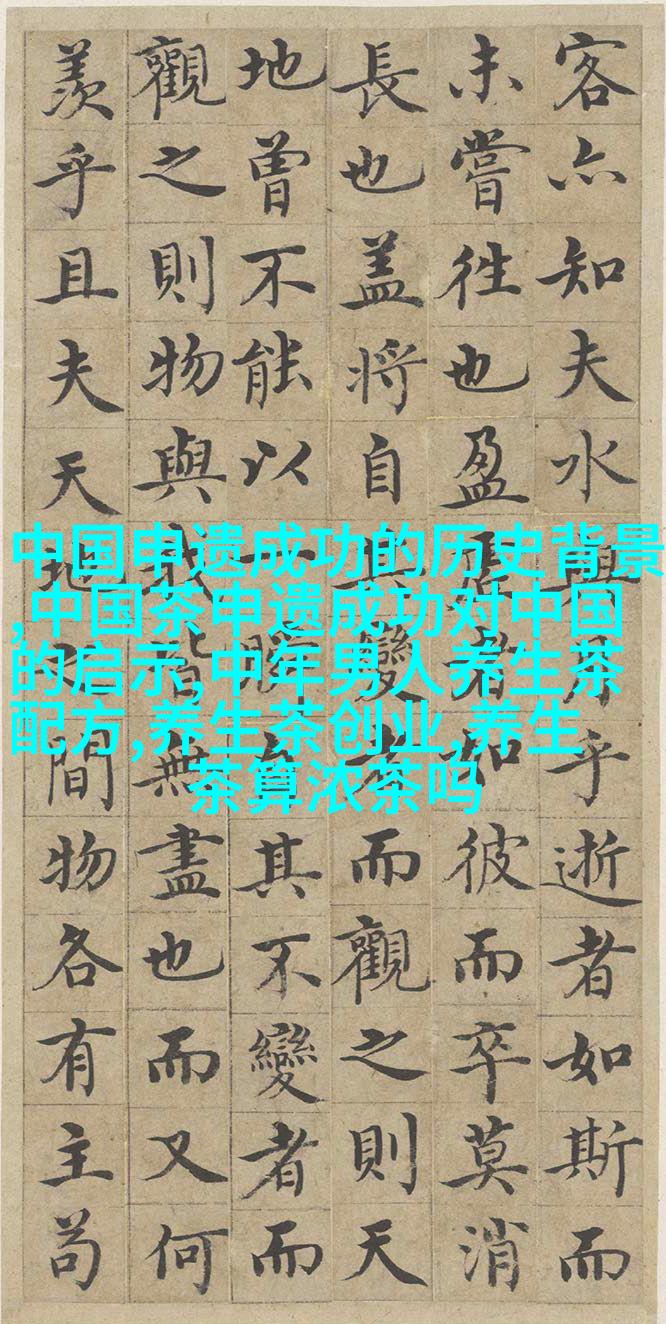 客亦知夫水與乎逝者如斯而
未嘗徃也盈者如彼而卒莫消
長也盖將自其變者而觀之則天
地曾不能以瞬其不變者而
觀之則物與我皆無盡也而又何
羨乎且夫天地間物各有主苟
中国申遗成功的历史背景
,中国茶申遗成功对中国
的启示,中年男人养生茶
配方,养生茶创业,养生
茶算浓茶吗